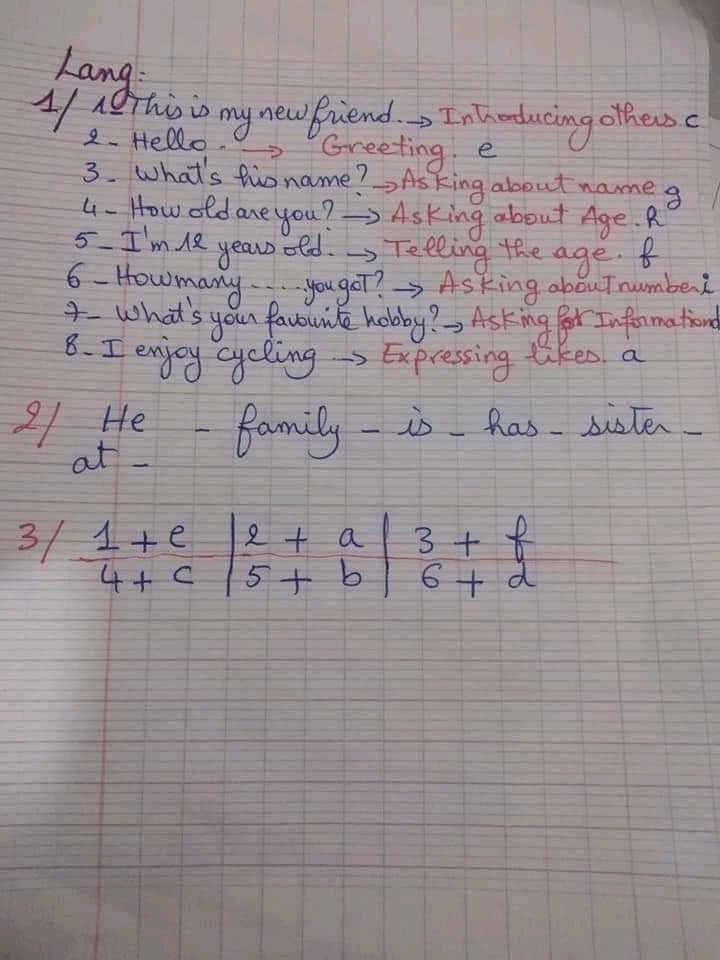 Lang:
1/ 1- This is my new friend. → Introducing others c
2- Hello. → Greeting. e
3- What's his name? → Asking about name g
4- How old are you? → Asking about Age. h
5- I'm 12 years old. → Telling the age. f
6- How many ...... you got? → Asking about number i
7- What's your favourite hobby? → Asking for Information d
8- I enjoy cycling → Expressing likes. a
2/ He - family - is - has - sister -
at -
3/ 1 + e | 2 + a | 3 + f
4 + c | 5 + b | 6 + d